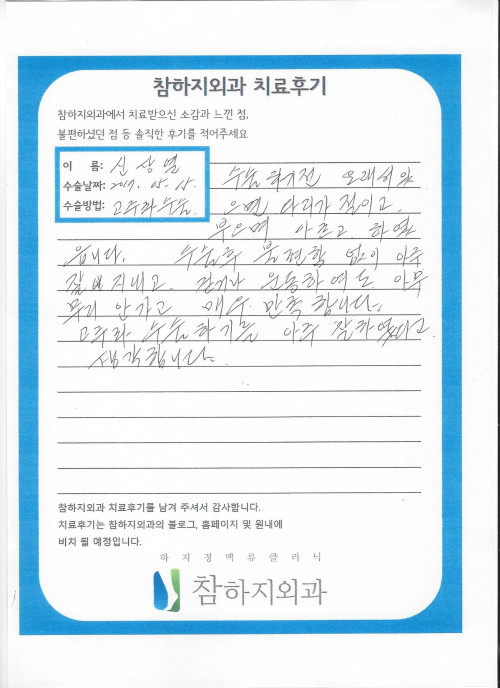 참하지외과 치료후기
참하지외과에서 치료받으신 소감과 느낀 점,
불편하셨던 점 등 솔직한 후기를 적어주세요
이 름: 신상열
수술날짜: 2017. 05. 15.
수술방법: 고주파수술
수술하기전 오래서있
으면 다리가 저리고
부으며 아프고 하였
읍니다. 수술후 불편함 없이 아주
잘 지내고. 걷거나 운동하여도 아무
무리 안가고 매우 만족합니다.
고주파 수술하기를 아주 잘하였다고
생각합니다.
참하지외과 치료후기를 남겨 주셔서 감사합니다.
치료후기는 참하지외과의 블로그, 홈페이지 및 원내에
비치 될 예정입니다.
하지정맥류클리닉
참하지외과